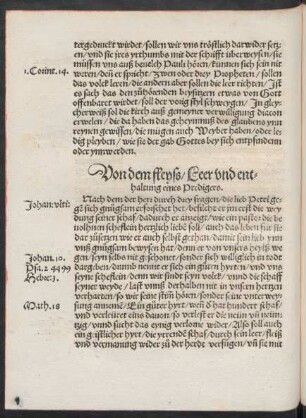 tergedruckt würdet/ sollen wir vns tröstlich darwider setz-
en/ vnd sie jres yrthumbs mit der schrifft überweysen/ sie
müssen vns auß beuelch Pauli hören/ künnen sich sein nit
1. Corint. 14.
weren/ deñ er spricht/ zwen oder drey Propheten/ sollen
das volck leren/ die andern aber sollen die leer richten/ Ist
es sach das den zůhörenden beysitzern etwas von Gott
offenbaret würdet/ soll der vorig styl schweygen/ In gley-
cherweiß sol die kirch auß gemeyner verwilligung diacon
erwelen/ die da haben das geheymnuß des glaubens ynn
reynen gewissen/ die mügen auch Weyber haben/ oder le-
dig pleyben/ wie sie der gab Gottes bey sich entpfinden
oder ynnwerden.
Von dem fleyß/ Leer vnd ent-
haltung eines Predigers.
Johan: vlti:
Nach dem der herr durch drey fragen/ die lieb Petri gegẽ
sich gnůgsam erforschet het/ beuilcht er jm erst die wey
dung seiner schaf/ dadurch er anzeigt/ wie ein pastor die be
nolhen scheflein hertzlich lieb soll/ auch das leben für sie
dar zůsetzen wie er auch selbst gethan/ damit sein lieb vnns
gnůgsam beweyßt/ wenn er den er von vnsers heyls we-
gen/ seyn selbs nit geschonet/ sonder sich williglich in todt
Johan. 10.
dargeben/ dumb nennt er sich ein gůten hyrtten/ vnd vns
Psa. 2 44 99
seyne scheflein/ denn wir sindt seyn volck/ vnd die schaff
Hebre: 3.
seyner weyde/ last vnß derhalben nit in vnsern hertzen
verharten/ so wir seine stim̃ hören/ sonder seine vnterwey-
Math. 18
sung annemẽ/ Ein gůter hyrt/ wen d' hat hundert schaf/
vnd verleüret eins dauon/ so verlest er die neün vñ neün
tzyg/ vnnd sucht das eynig verlorne wider/ Also soll auch
ein yegklich hyrt/ die yrrenden schaf/ durch sein leer/ fleiß
vnd vermanung wider zů der herdt verfügen/ vñ sie mit